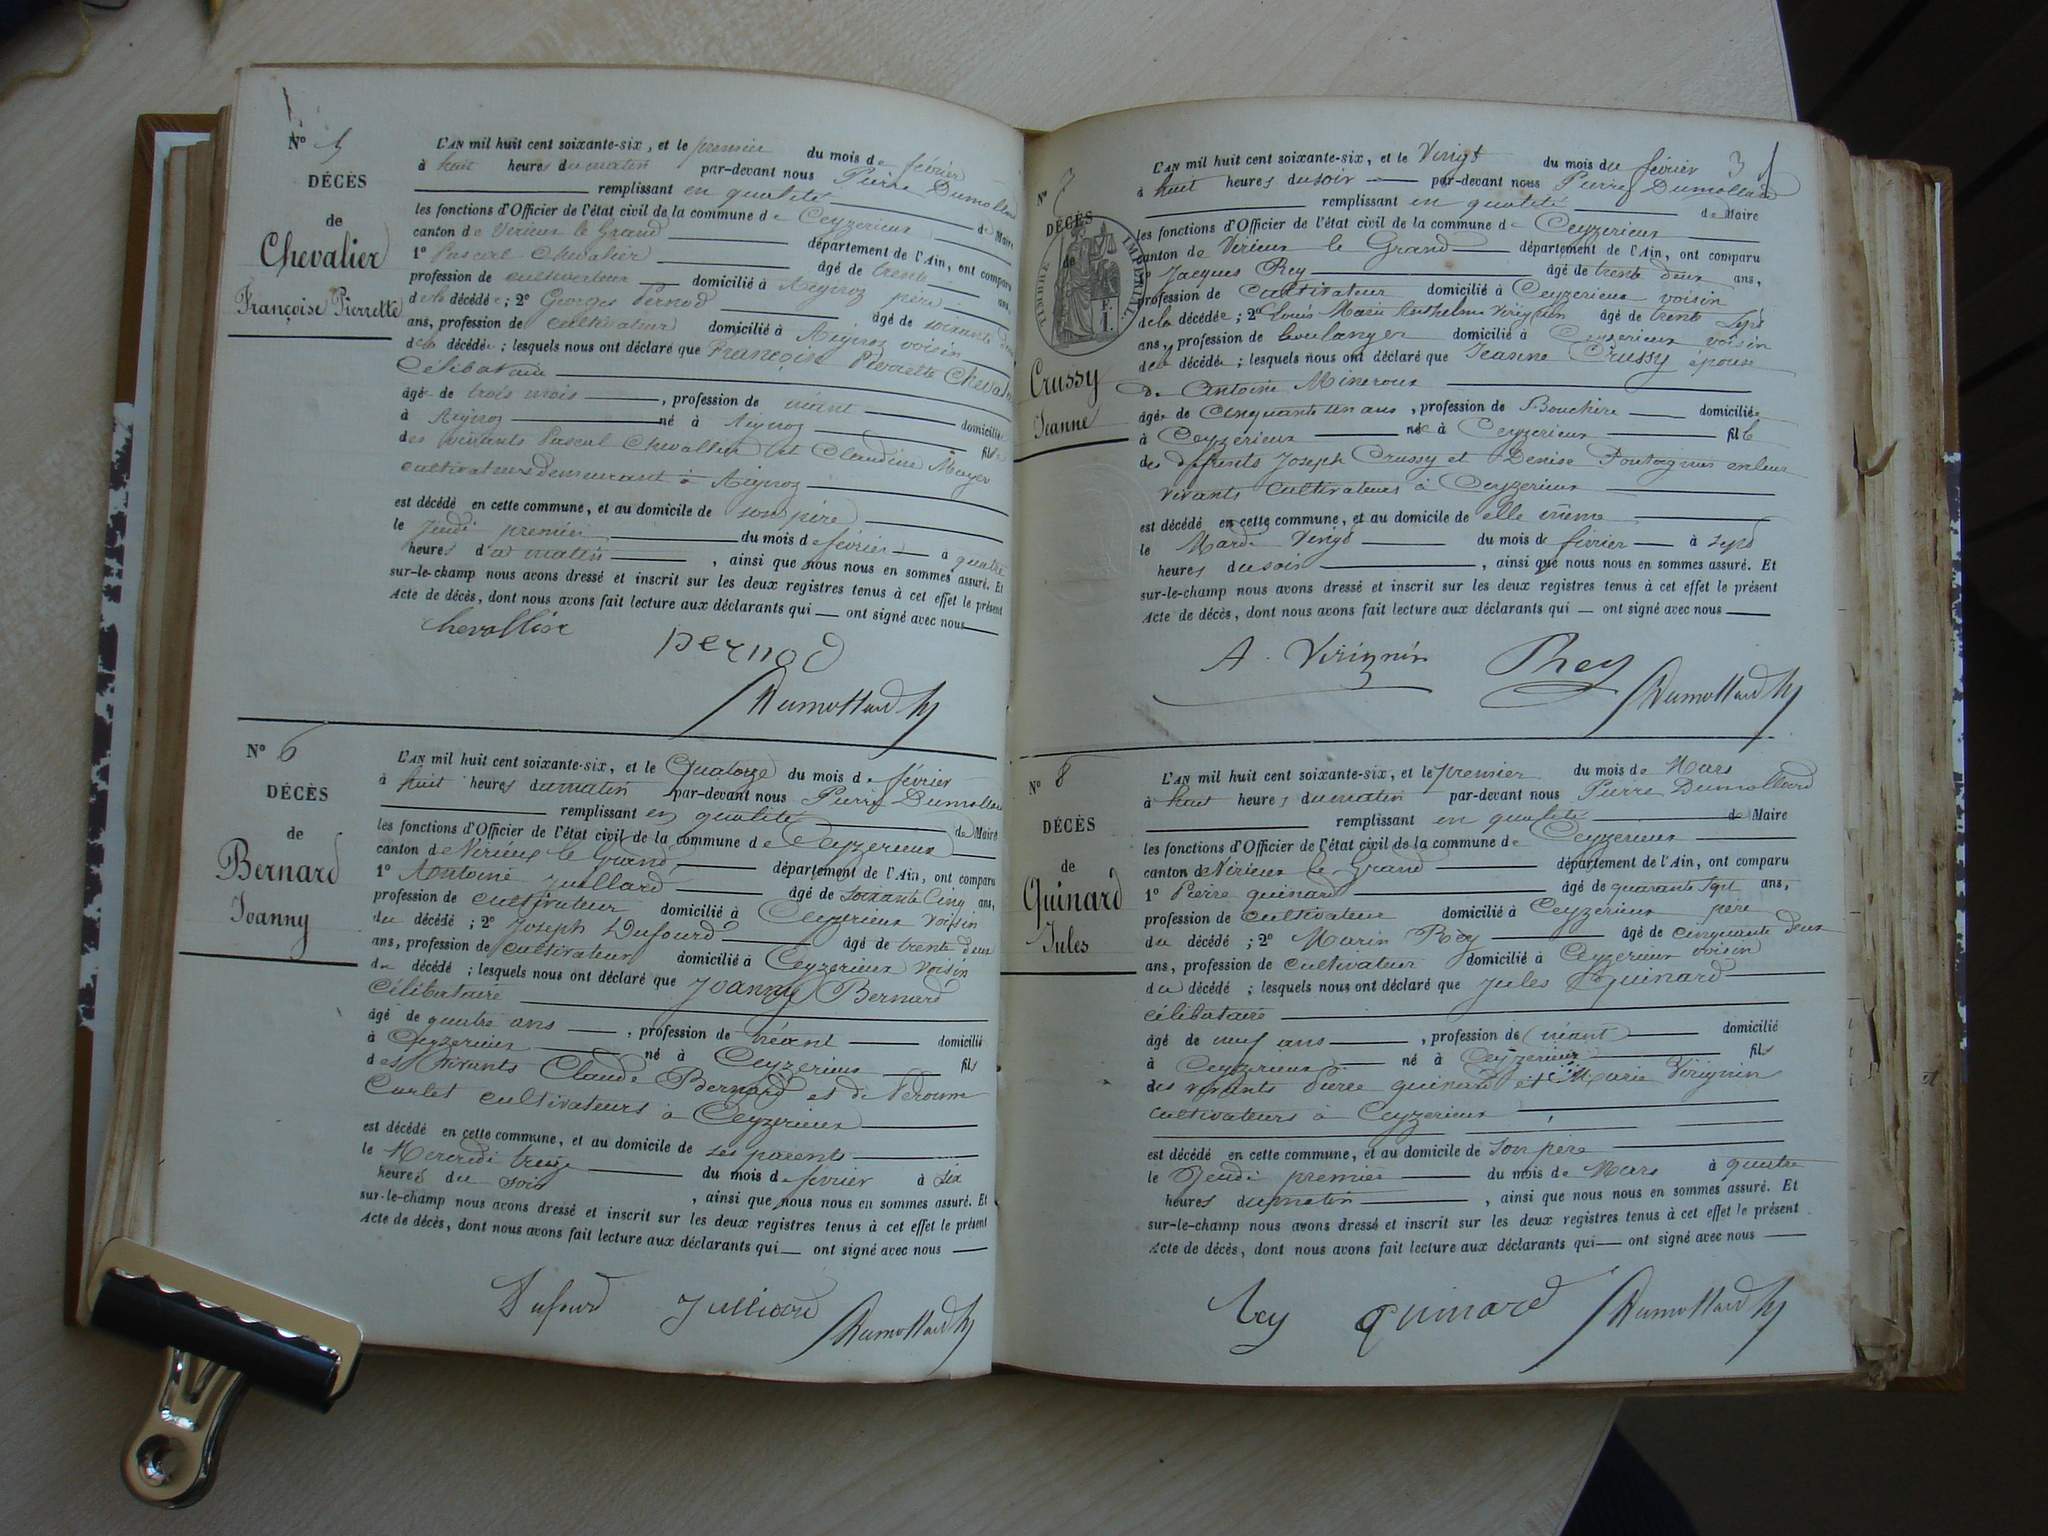 N° 5
DÉCÈS
de
Chevalier
Françoise Pierrette
L'AN mil huit cent soixante-six, et le premier du mois de février
à huit heures du matin par-devant nous Pierre Dumollard
remplissant en qualité de Maire
les fonctions d'Officier de l'état civil de la commune de Ceyzerieux
canton de Virieux le Grand département de l'Ain, ont comparu
1° Pascal Chevalier âgé de trente ans,
profession de cultivateur domicilié à Aignoz père
de la décédée ; 2° Georges Pernod âgé de soixante deux
ans, profession de cultivateur domicilié à Aignoz voisin
de la décédée ; lesquels nous ont déclaré que Françoise Pierrette Chevalier
Célibataire
âgée de trois mois , profession de néant domiciliée
à Aignoz né à Aignoz fille
des vivants Pascal Chevallier et Claudine Moyer
cultivateurs demeurant à Aignoz
est décédé en cette commune, et au domicile de son père
le Jeudi premier du mois de février à quatre
heures du matin , ainsi que nous nous en sommes assuré. Et
sur-le-champ nous avons dressé et inscrit sur les deux registres tenus à cet effet le présent
Acte de décès, dont nous avons fait lecture aux déclarants qui — ont signé avec nous
Chevallier pernod
Dumollard
N° 6
DÉCÈS
de
Bernard
Joanny
L'AN mil huit cent soixante-six, et le Quatorze du mois de février
à huit heures du matin par-devant nous Pierre Dumollard
remplissant en qualité de Maire
les fonctions d'Officier de l'état civil de la commune de Ceyzerieux
canton de Virieux le Grand département de l'Ain, ont comparu
1° Antoine Juillard âgé de soixante Cinq ans,
profession de cultivateur domicilié à Ceyzerieux voisin
du décédé ; 2° Joseph Dufourd âgé de trente deux
ans, profession de cultivateur domicilié à Ceyzerieux voisin
du décédé ; lesquels nous ont déclaré que Joanny Bernard
célibataire
âgé de quatre ans , profession de néant domicilié
à Ceyzerieux né à Ceyzerieux fils
des vivants Claude Bernard et de
Carlet cultivateurs à Ceyzerieux
est décédé en cette commune, et au domicile de ses parents
le Mercredi treize du mois de février à six
heures du soir , ainsi que nous nous en sommes assuré. Et
sur-le-champ nous avons dressé et inscrit sur les deux registres tenus à cet effet le présent
Acte de décès, dont nous avons fait lecture aux déclarants qui — ont signé avec nous —
Dufourd Julliard Dumollard
3
N° 7
DÉCÈS
de
TIMBRE IMPÉRIAL
1 F.
Crussy
Jeanne
L'AN mil huit cent soixante-six, et le Vingt du mois du février
à huit heures du soir par-devant nous Pierre Dumollard
remplissant en qualité de Maire
les fonctions d'Officier de l'état civil de la commune de Ceyzerieux
canton de Virieux le Grand département de l'Ain, ont comparu
1° Jacques Rey âgé de trente deux ans,
profession de cultivateur domicilié à Ceyzerieux voisin
de la décédée ; 2° Louis Marie Anthelme Virignin âgé de trente sept
ans, profession de boulanger domicilié à Ceyzerieux voisin
de la décédée ; lesquels nous ont déclaré que Jeanne Crussy épouse
de Antoine Mineroux
âgée de Cinquante un ans , profession de Bouchère domiciliée
à Ceyzerieux née à Ceyzerieux fille
des deffunts Joseph Crussy et Denise en leur
vivants cultivateurs à Ceyzerieux
est décédé en cette commune, et au domicile de elle même
le Mardi Vingt du mois de février à sept
heures du soir , ainsi que nous nous en sommes assuré. Et
sur-le-champ nous avons dressé et inscrit sur les deux registres tenus à cet effet le présent
Acte de décès, dont nous avons fait lecture aux déclarants qui — ont signé avec nous
A. Virignin Rey
Dumollard
N° 8
DÉCÈS
de
Quinard
Jules
L'AN mil huit cent soixante-six, et le premier du mois de Mars
à huit heures du matin par-devant nous Pierre Dumollard
remplissant en qualité de Maire
les fonctions d'Officier de l'état civil de la commune de Ceyzerieux
canton de Virieux le Grand département de l'Ain, ont comparu
1° Pierre quinard âgé de quarante sept ans,
profession de cultivateur domicilié à Ceyzerieux père
du décédé ; 2° Marin Rey âgé de cinquante deux
ans, profession de cultivateur domicilié à Ceyzerieux voisin
du décédé ; lesquels nous ont déclaré que Jules Quinard
célibataire
âgé de neuf ans , profession de néant domicilié
à Ceyzerieux né à Ceyzerieux fils
des vivants Pierre quinard et Marie Virignin
cultivateurs à Ceyzerieux
est décédé en cette commune, et au domicile de son père
le Jeudi premier du mois de Mars à quatre
heures du matin , ainsi que nous nous en sommes assuré. Et
sur-le-champ nous avons dressé et inscrit sur les deux registres tenus à cet effet le présent
Acte de décès, dont nous avons fait lecture aux déclarants qui — ont signé avec nous
Rey quinard Dumollard